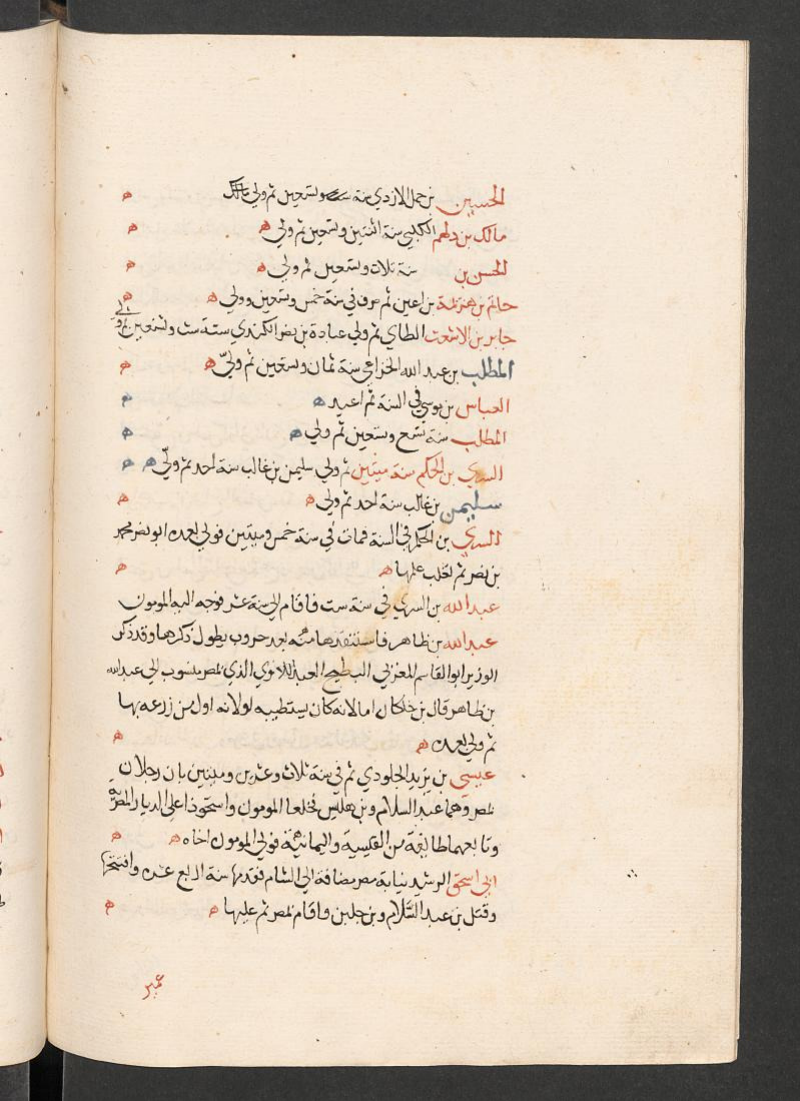 الحسين بن حمل الازدي سنة وتسعين ثم ولي مالك ه
مالك بن دلهم الكلبي سنة اثنتين وتسعين ثم ولي ه ه
الحسن بن سنة ثلاث وتسعين ثم ولي ه ه
حاتم بن هرثمة بن اعين ثم صرف في سنة خمس وتسعين وولي ه ه
جابر بن الاشعت الطاي ثم ولي عبادة بن نصر الكندي سنة ست وتسعين ثم ولي
المطلب بن عبد الله الخزاعي سنة ثمان وتسعين ثم ولي ه ه
العباس بن موسى في السنة ثم اعيد ه ه
المطلب سنة تسع وتسعين ثم ولي ه ه
السري بن الحكم سنة ميتين ثم ولي سليمن بن غالب سنة احد ثم ولي ه ه
سليمن بن غالب سنة احد ثم ولي ه ه
السري بن الحكم في السنة فمات في سنة خمس وميتين فولي بعده ابو نصر محمد
بن نصر ثم تغلب عليها ه ه
عبد الله بن السري في سنة ست فاقام الى سنة عشر فوجه اليه المومون
عبد الله بن طاهر فاستنقدها منه بعد حروب يطول ذكرها وقد ذكر
الوزير ابو القاسم المغربي البطيخ العبدلاوي الذي بمصر منسوب الى عبد الله
بن طاهر قال بن خلكان اما لانه كان يستطيبه او لانه اول من زرعه بها
ثم ولي بعده ه ه
عيسى بن يزيد الجلودي ثم في سنة ثلاث وعشرين وميتين بان رجلان
بمصر وهما عبد السلام وبن هلبس فخلعا المومون واستحوذا على الديار المصرية
وتابعهما طايفة من القيسية واليمانية فولي المومون اخاه ه ه
ابي اسحق الرشيد نيابة مصر مضافة الى الشام فقدمها سنة اربع عشره وافتتحها
وقتل بن عبد السلام وبن جلبن واقام بمصر ثم عليها ه ه
عمير